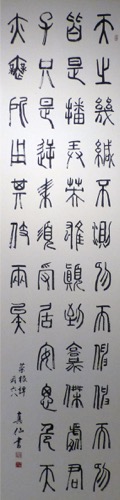 天之幾緘不測抑而伸伸而抑
皆是播弄英雄顛倒豪傑處君
子只是逆來順受居安思危天
亦無所用其伎倆矣
菜根譚